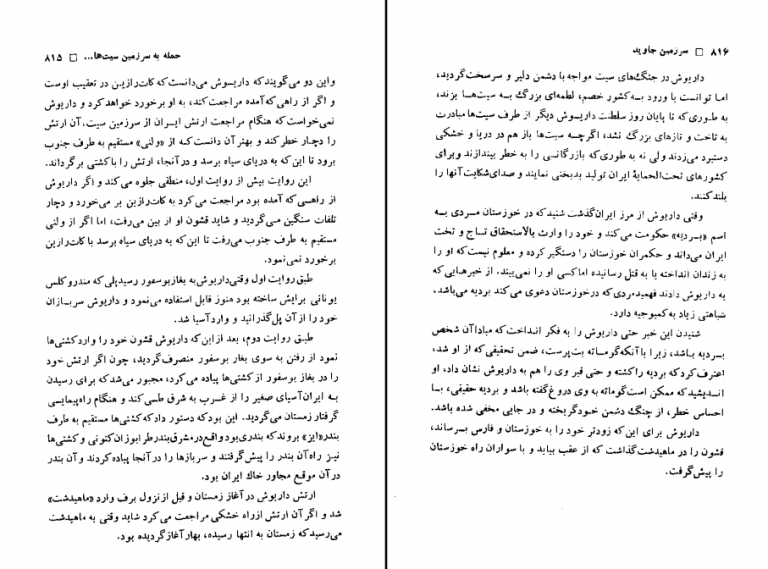 حمله به سرزمین سیت‌ها... □ ۸۱۵
واین دو می‌گویند که داریوش می‌دانست که کات‌رازین در تعقیب اوست
و اگر از راهی که آمده مراجعت کند، به او برخورد خواهد کرد و داریوش
نمی‌خواست که هنگام مراجعت ارتش ایران از سرزمین سیت، آن ارتش
را دچار خطر کند و بهتر آن دانست که از «ولنی» مستقیم به طرف جنوب
برود تا این که به دریای سیاه برسد و در آنجا، ارتش را با کشتی برگرداند.
این روایت بیش از روایت اول، منطقی جلوه می‌کند و اگر داریوش
از راهی که آمده بود مراجعت می‌کرد به کات‌رازین بر می‌خورد و دچار
تلفات سنگین می‌گردید و شاید قشون او از بین می‌رفت، اما اگر از ولنی
مستقیم به طرف جنوب می‌رفت تا این که به دریای سیاه برسد با کات‌رازین
برخورد نمی‌نمود.
طبق روایت اول وقتی داریوش به بغاز بوسفور رسید پلی که مندروکلس
یونانی برایش ساخته بود هنوز قابل استفاده می‌نمود و داریوش سربازان
خود را از آن پل گذرانید و وارد آسیا شد.
طبق روایت دوم، بعد از این که داریوش قشون خود را وارد کشتی‌ها
نمود از رفتن به سوی بغاز بوسفور منصرف گردید، چون اگر ارتش خود
را در بغاز بوسفور از کشتی‌ها پیاده می‌کرد، مجبور می‌شد که برای رسیدن
به ایران آسیای صغیر را از غرب به شرق طی کند و هنگام راه‌پیمایی
گرفتار زمستان می‌گردید. این بود که دستور داد که کشتی‌ها مستقیم به طرف
بندر «ایز» بروند که بندری بود واقع در مشرق بندر طرابوزان کنونی و کشتی‌ها
نیز راه آن بندر را پیش گرفتند و سربازها را در آنجا پیاده کردند و آن بندر
در آن موقع مجاور خاك ایران بود.
ارتش داریوش در آغاز زمستان و قبل از نزول برف وارد «ماهیدشت»
شد و اگر آن ارتش از راه خشکی مراجعت می‌کرد شاید وقتی به ماهیدشت
می‌رسید که زمستان به انتها رسیده، بهار آغاز گردیده بود.
۸۱۶ □ سرزمین جاوید
داریوش در جنگ‌های سیت مواجه با دشمن دلیر و سرسخت گردید،
اما توانست با ورود به کشور خصم، لطمه‌ای بزرگ به سیت‌ها بزند،
به طوری که تا پایان روز سلطنت داریوش دیگر از طرف سیت‌ها مبادرت
به تاخت و تازهای بزرگ نشد، اگرچه سیت‌ها باز هم در دریا و خشکی
دستبرد می‌زدند ولی نه به طوری که بازرگانی را به خطر بیندازند و برای
کشورهای تحت‌الحمایهٔ ایران تولید بدبختی نمایند و صدای شکایت آنها را
بلند کنند.
وقتی داریوش از مرز ایران گذشت شنید که در خوزستان مردی به
اسم «بردیه» حکومت می‌کند و خود را وارث بالاستحقاق تاج و تخت
ایران می‌داند و حکمران خوزستان را دستگیر کرده و معلوم نیست که او را
به زندان انداخته یا به قتل رسانیده اما کسی او را نمی‌بیند. از خبرهایی که
به داریوش دادند فهمید مردی که در خوزستان دعوی می‌کند بردیه می‌باشد،
شباهتی زیاد به کمبوجیه دارد.
شنیدن این خبر حتی داریوش را به فکر انداخت که مبادا آن شخص
بردیه باشد، زیرا با آنکه گوماته بت‌پرست، ضمن تحقیقی که از او شد،
اعتراف کرد که بردیه را کشته و حتی قبر وی را هم به داریوش نشان داد، او
اندیشید که ممکن است گوماته به وی دروغ گفته باشد و بردیه حقیقی، با
احساس خطر، از چنگ دشمن خود گریخته و در جایی مخفی شده باشد.
داریوش برای این که زودتر خود را به خوزستان و فارس برساند،
قشون را در ماهیدشت گذاشت که از عقب بیاید و با سواران راه خوزستان
را پیش گرفت.